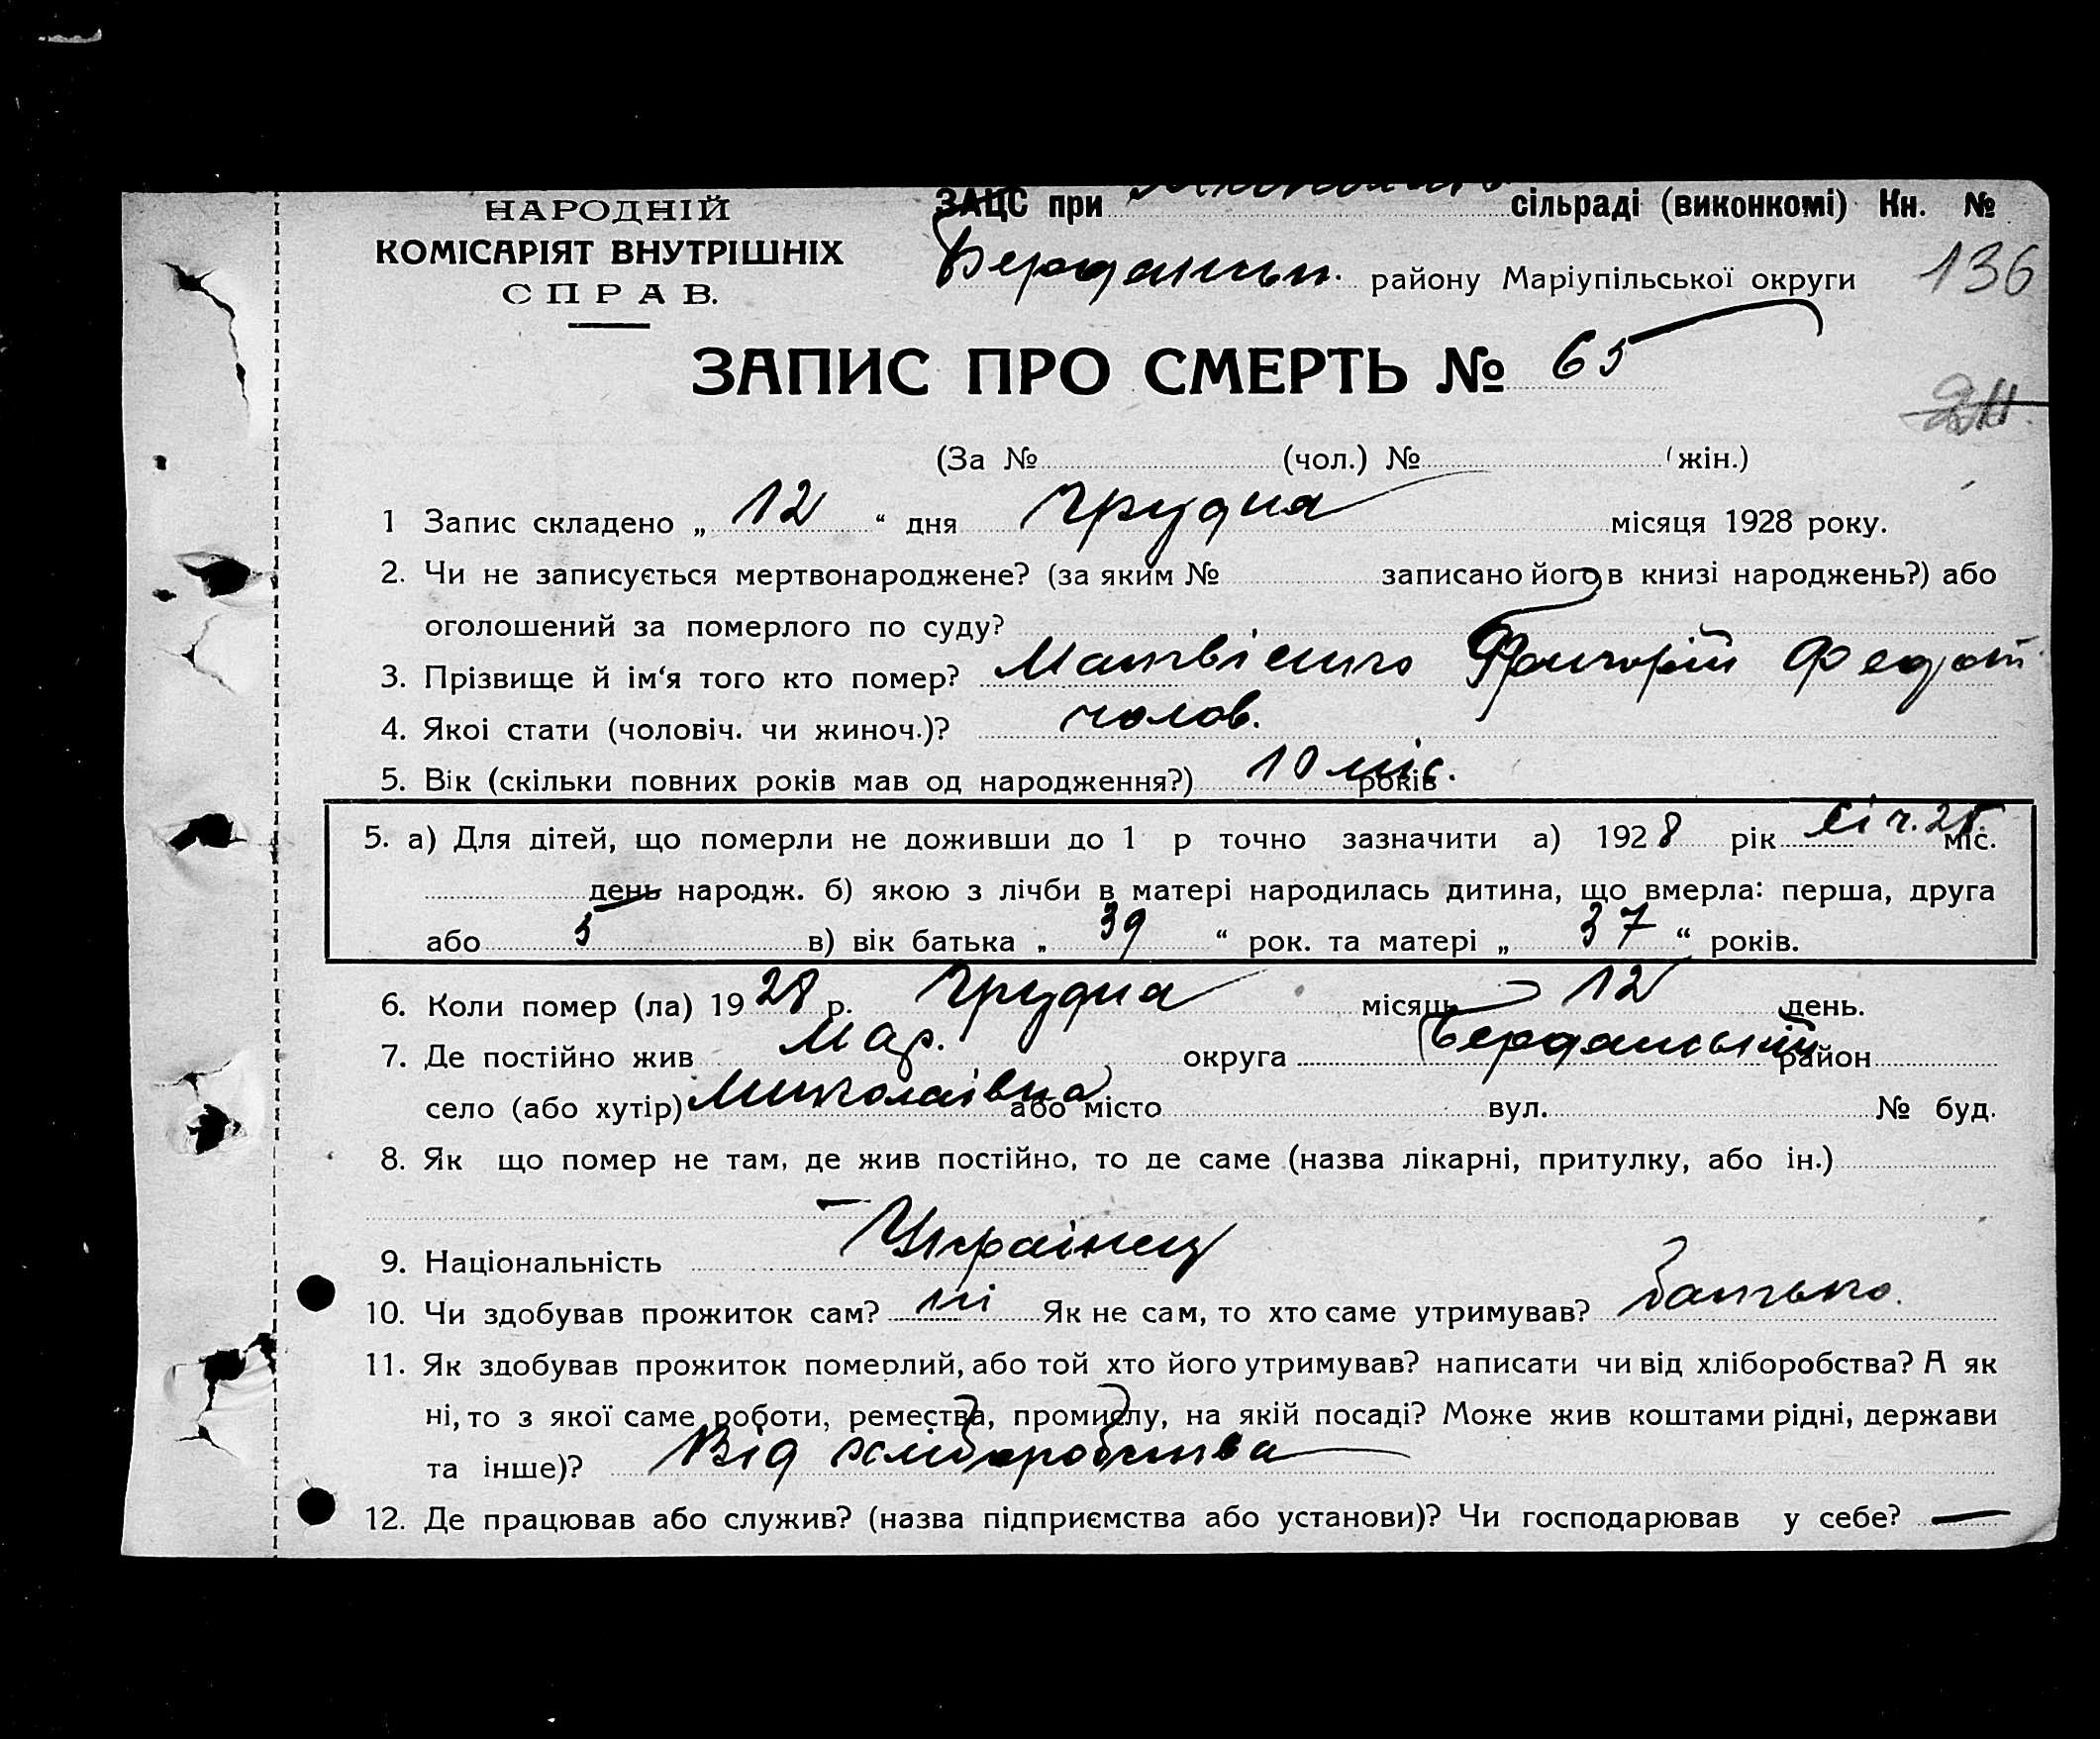 НАРОДНІЙ
КОМІСАРІЯТ ВНУТРІШНІХ
СПРАВ.
ЗАЦС при сільраді (виконкомі) Кн. №
Бердянськ. району Маріупільської округи 136
ЗАПИС ПРО СМЕРТЬ № 65
(За № (чол.) № (жін.)
1 Запис складено „ 12 “ дня Грудня місяця 1928 року.
2. Чи не записується мертвонароджене? (за яким № записано його в книзі народжень?) або
оголошений за померлого по суду?
3. Прізвище й ім‘я того кто помер? Матвієнко Григорій Федот.
4. Якоі стати (чоловіч. чи жиноч.)? чолов.
5. Вік (скільки повних років мав од народження?) 10 міс. років
5. а) Для дітей, що померли не доживши до 1 р точно зазначити а) 1928 рік Січ. 25 міс.
день народж. б) якою з лічби в матері народилась дитина, що вмерла: перша, друга
або 5 в) вік батька „ 39 “ рок. та матері „ 37 “ років.
6. Коли помер (ла) 1928 р. Грудня місяць 12 день.
7. Де постійно жив Мар. округа Бердянський район
село (або хутір) Миколаівка або місто вул. № буд.
8. Як що помер не там, де жив постійно, то де саме (назва лікарні, притулку, або ін.)
–
9. Національність Украінец
10. Чи здобував прожиток сам? ні Як не сам, то хто саме утримував? батько.
11. Як здобував прожиток померлий, або той хто його утримував? написати чи від хліборобства? А як
ні, то з якої саме роботи, ремества, промислу, на якій посаді? Може жив коштами рідні, держави
та інше)? Від хліборобства
12. Де працював або служив? (назва підприємства або установи)? Чи господарював у себе? —